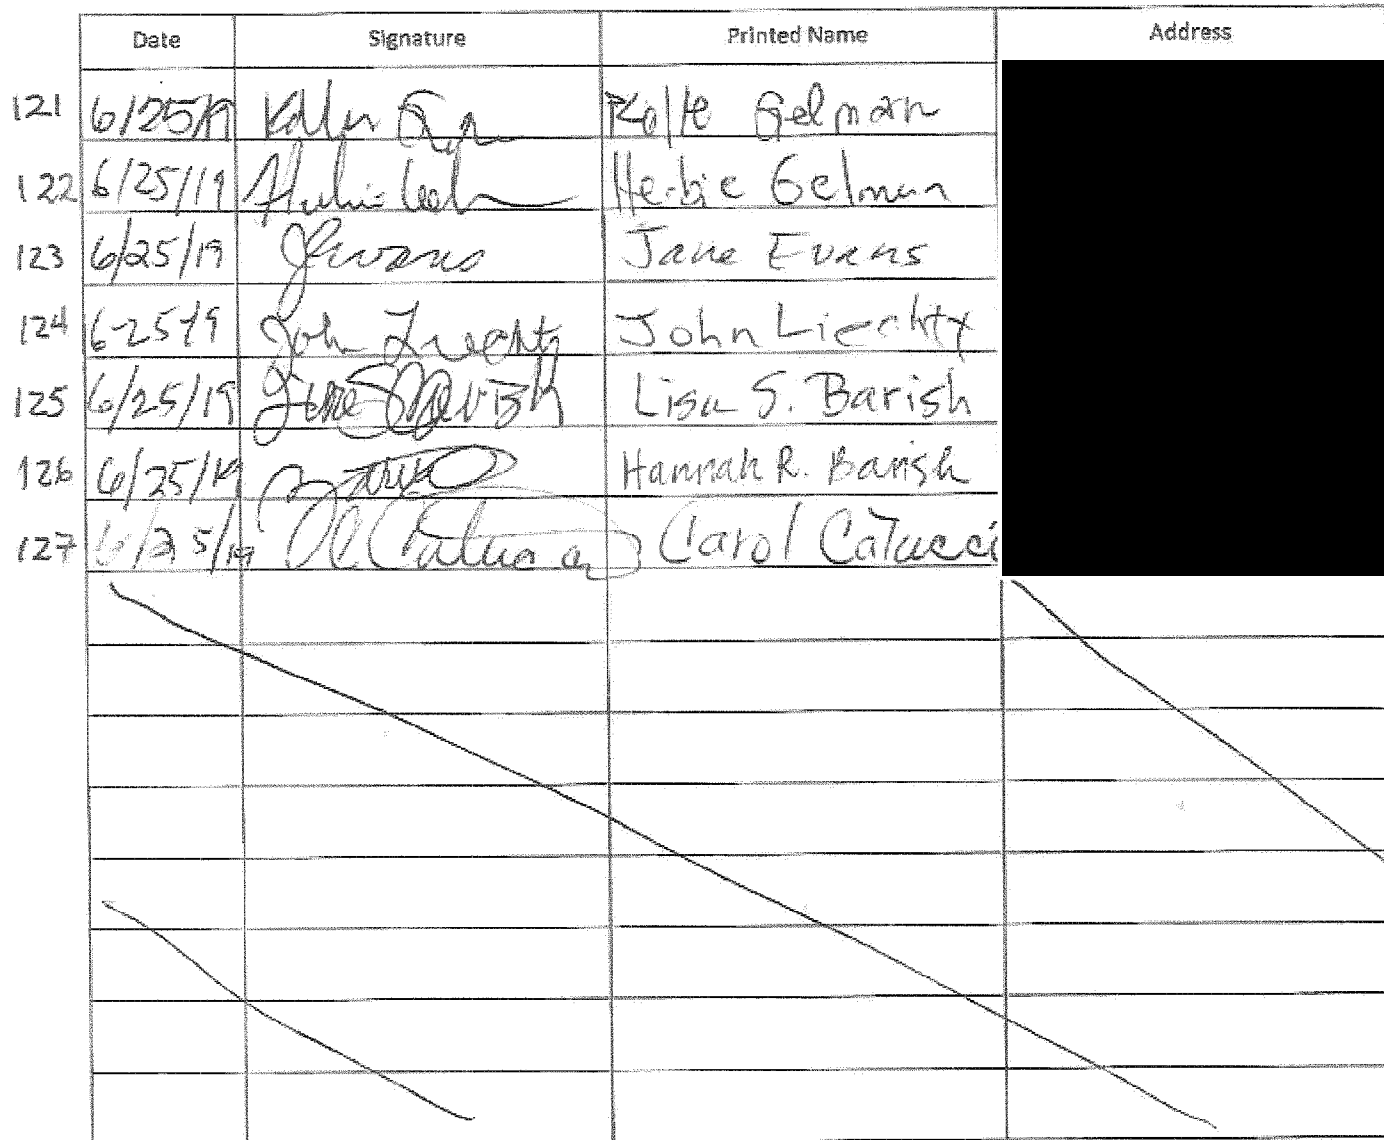 Date Signature Printed Name Address
121 6/25/19 Gelman
122 6/25/19 Herbie Gelman
123 6/25/19 JEvans Jane Evans
124 6-25-19 John Liechty John Liechty
125 6/25/19 Lisa S. Barish
126 6/25/19 Hannah R. Barish
127 6/25/19 Carol Catucci